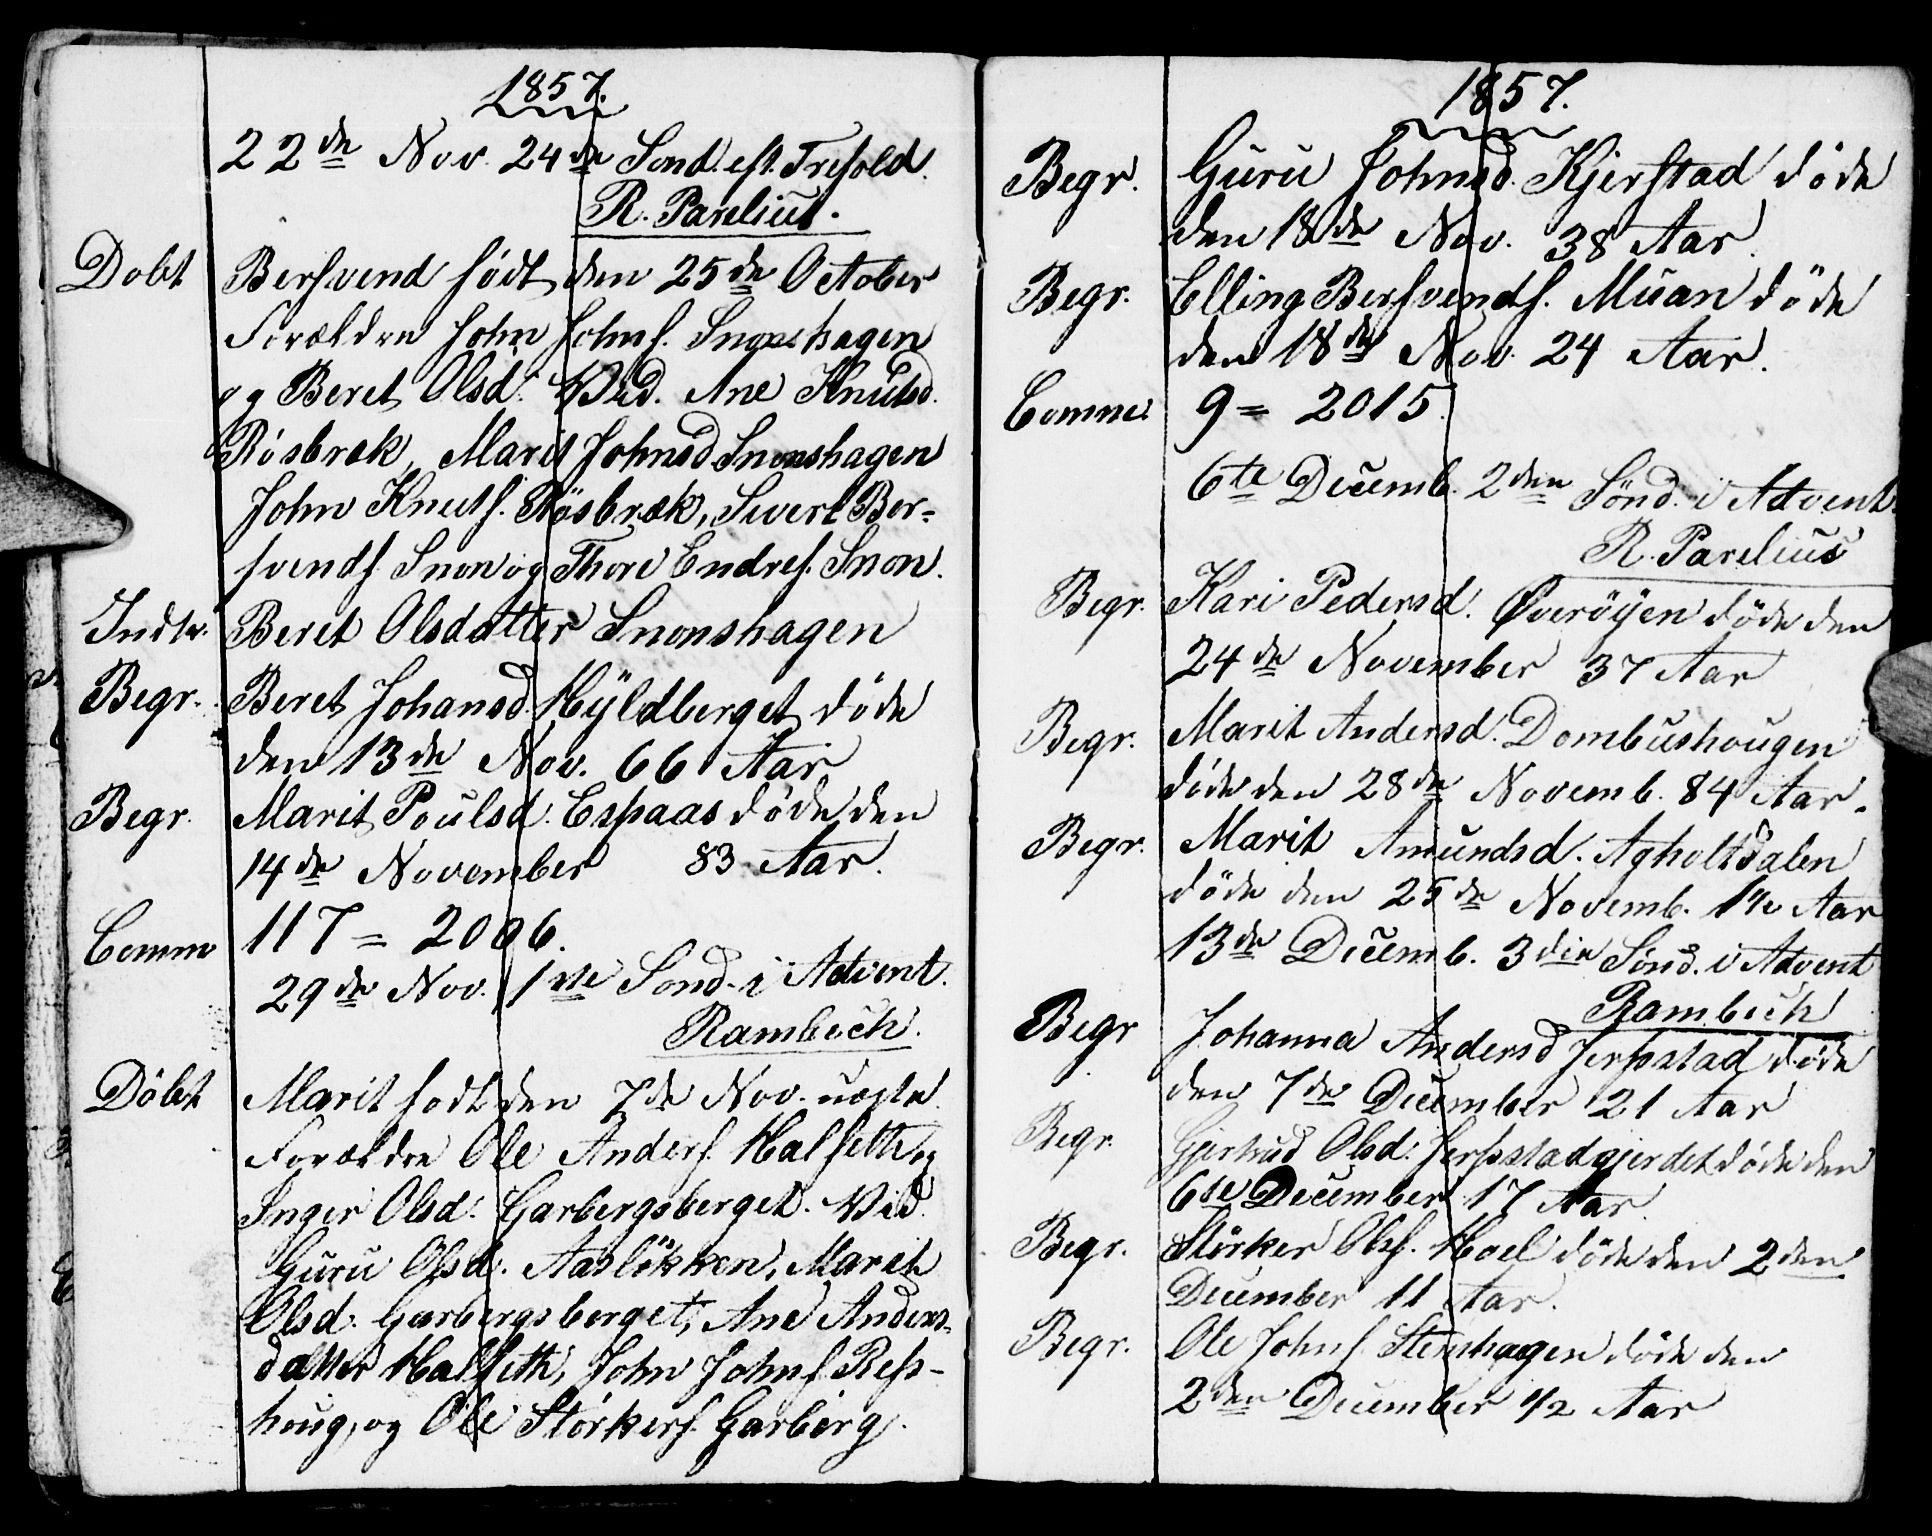 1857.
22de Nov. 24de Sond. eft. Trefold.
R. Parelius.
Dobt Bersvend födt den 25de October
Forældre John Johns. Snoenshagen
og Beret Olsd. Vid. Ane Knutsd.
Rösbræk, Marit Johnsd Snoenshagen
John Knuts. Rösbræk, Sivert Ber-
svends. Snoen og Thore Endres. Snoen.
Indtr. Beret Olsdatter Snoenshagen
Begr. Beret Johansd. Hÿldberget döde
den 13de Nov. 66 Aar
Begr. Marit Poulsd. Espaas döde den
14de November 83 Aar.
Comm 117 = 2006.
29de Nov. 1ste Sond. i Advent.
Rambech.
Döbt Marit fodt den 7de Nov. uægte
Forældre Ole Anders. Halseth og
Inger Olsd. Garbergsberget. Vid.
Guru Olsd. Aaslökken, Marit
Olsd. Garbergsberget, Ane Anders-
datter Halseth, John Johns. Ress-
houg, og Ole Störkers. Garberg.
1857.
Begr. Guru Johnsd. Kjerstad döde
den 18de Nov. 38 Aar.
Begr. Elling Bersvends. Muan döde
den 18de Nov. 24 Aar.
Comm. 9 = 2015.
6te Decemb. 2den Sönd. i Advent.
R. Parelius
Begr. Kari Pedersd. Overöÿen döde den
24de November 37 Aar
Begr. Marit Andersd. Dombushougen
döde den 28de Novemb. 84 Aar.
Begr. Marit Amundsd. Agholtdalen
döde den 25de Novemb. 1½ Aar
13de Decemb. 3die Sönd. i Advent
Rambech
Begr Johanna Andersd Jerpstad döde
den 7de December 21 Aar
Begr. Gjertrud Olsd. Jerpstadgjerdet döde den
6te December 17 Aar.
Begr. Störker Ols. Hoel döde den 2den
December 11 Aar.
Begr. Ole Johns. Stenshagen döde den
2den December ½ Aar